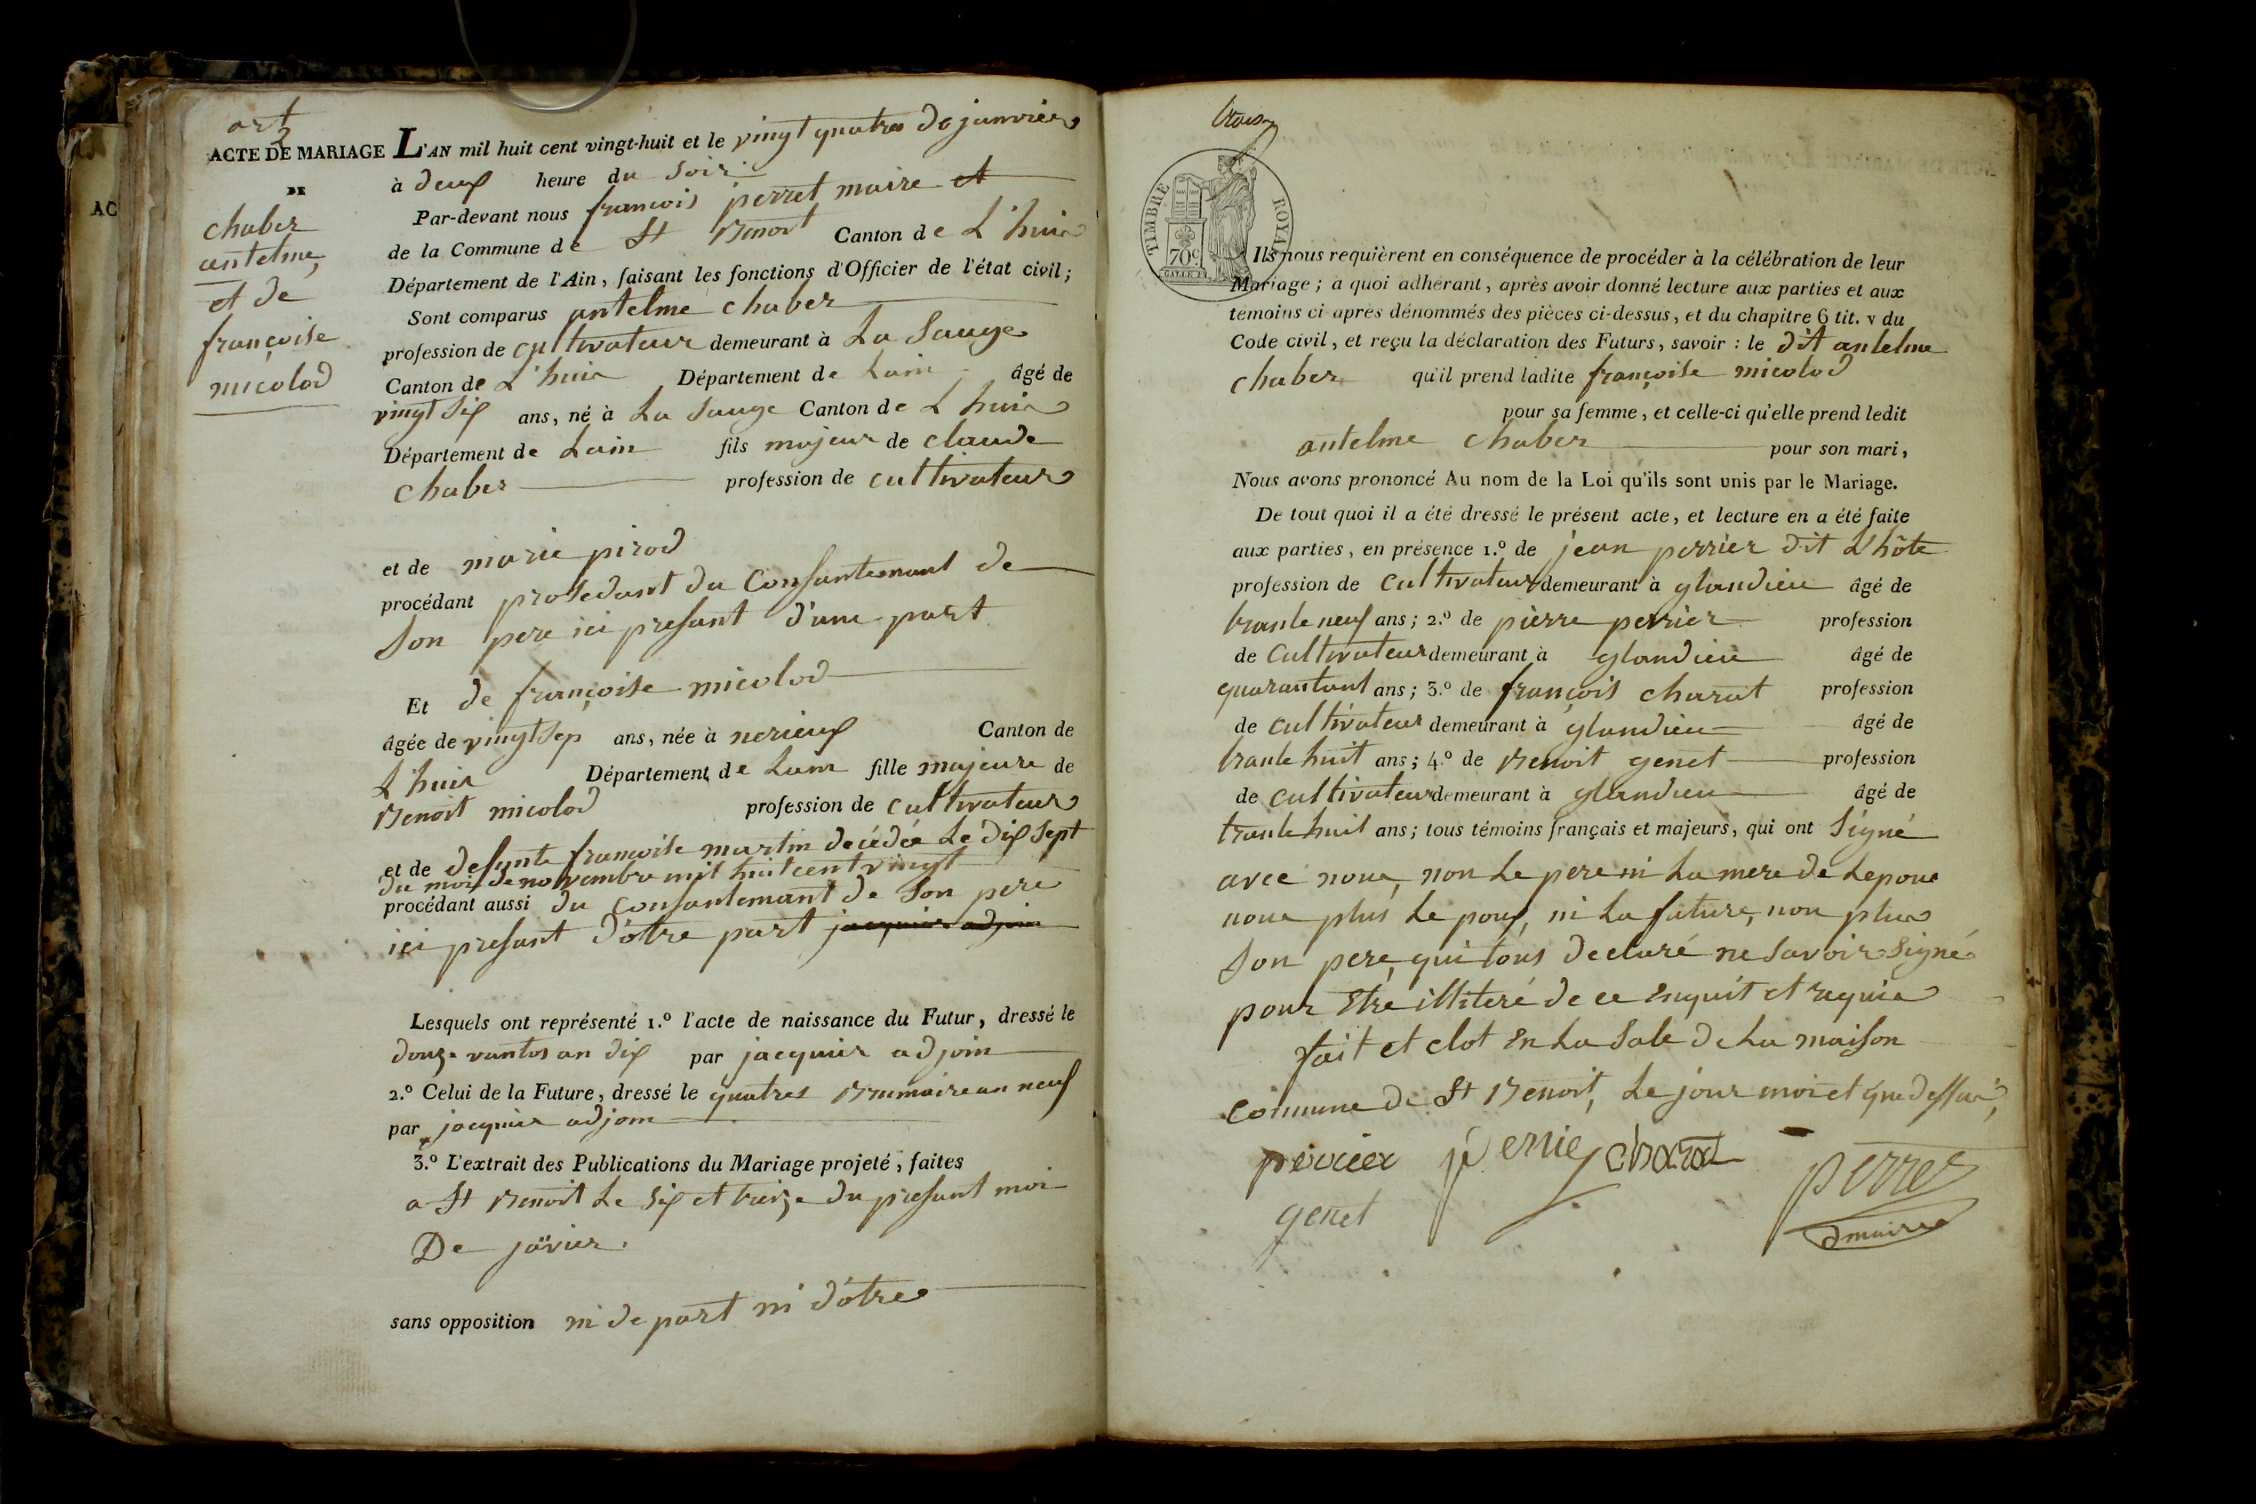 art
3
ACTE DE MARIAGE
DE
chaber
antelme,
et de
françoise
micolod
AC
L'AN mil huit cent vingt-huit et le vingt quatres de janvier
à deux heure du soir
Par-devant nous françois perret maire et
de la Commune de St Benoit Canton de L'huis
Département de l'Ain, faisant les fonctions d'Officier de l'état civil;
Sont comparus antelme chaber
profession de cultivateur demeurant à La Sauge
Canton de L'huis Département de Lain âgé de
vingt six ans, né à La Sauge Canton de L'huis
Département de Lain fils majeur de claude
chaber profession de cultivateur
et de marie pirod
procédant prosedant du Consantemant de
Son pere ici presant d'une part
Et de françoise micolod
âgée de vingt sep ans, née à nerieux Canton de
L'huis Département de Lain fille majeure de
Benoit micolod profession de cultivateur
et de defunte françoise martin decédée Le dix sept
du mois de novembre mil huit cent vingt
procédant aussi du consantemant de Son pere
ici presant d'otre part jacquier adjoin
Lesquels ont représenté 1.º l'acte de naissance du Futur, dressé le
douze vantos an dix par jacquier adjoin
2.º Celui de la Future, dressé le quatres Brumaire an neuf
par jacquier adjoin
3.º L'extrait des Publications du Mariage projeté, faites
a St Benoit Le Six et treize du presant moi
De janvier.
sans opposition ni de part ni d'otre
trois
TIMBRE ROYAL
70c
Ils nous requièrent en conséquence de procéder à la célébration de leur
Mariage; à quoi adhérant, après avoir donné lecture aux parties et aux
témoins ci après dénommés des pièces ci-dessus, et du chapitre 6 tit. v du
Code civil, et reçu la déclaration des Futurs, savoir: le dit antelme
chaber qu'il prend ladite françoise micolod
pour sa femme, et celle-ci qu'elle prend ledit
antelme chaber pour son mari,
Nous avons prononcé Au nom de la Loi qu'ils sont unis par le Mariage.
De tout quoi il a été dressé le présent acte, et lecture en a été faite
aux parties, en présence 1.º de jean perrier dit L'hôte
profession de cultivateur demeurant à glandieu âgé de
trante neuf ans; 2.º de pierre perrier profession
de cultivateur demeurant à glandieu âgé de
quarantant ans; 3.º de françois charat profession
de cultivateur demeurant à glandieu âgé de
trante huit ans; 4.º de Benoit genet profession
de cultivateur demeurant à glandieu âgé de
trante huit ans; tous témoins français et majeurs, qui ont Signé
avec nous, non Le pere ni La mere de Lepous
nous plus Le poux, ni La future, non plus
Son pere, qui tous decluré ne savoir Signé
pour Etre illiteré de ce enquit et requis
fait et clot En La Sale de La maison
commune de St Benoit, Le jour moi et que dessus,
perrier p perrier charat
genet
perret
maire